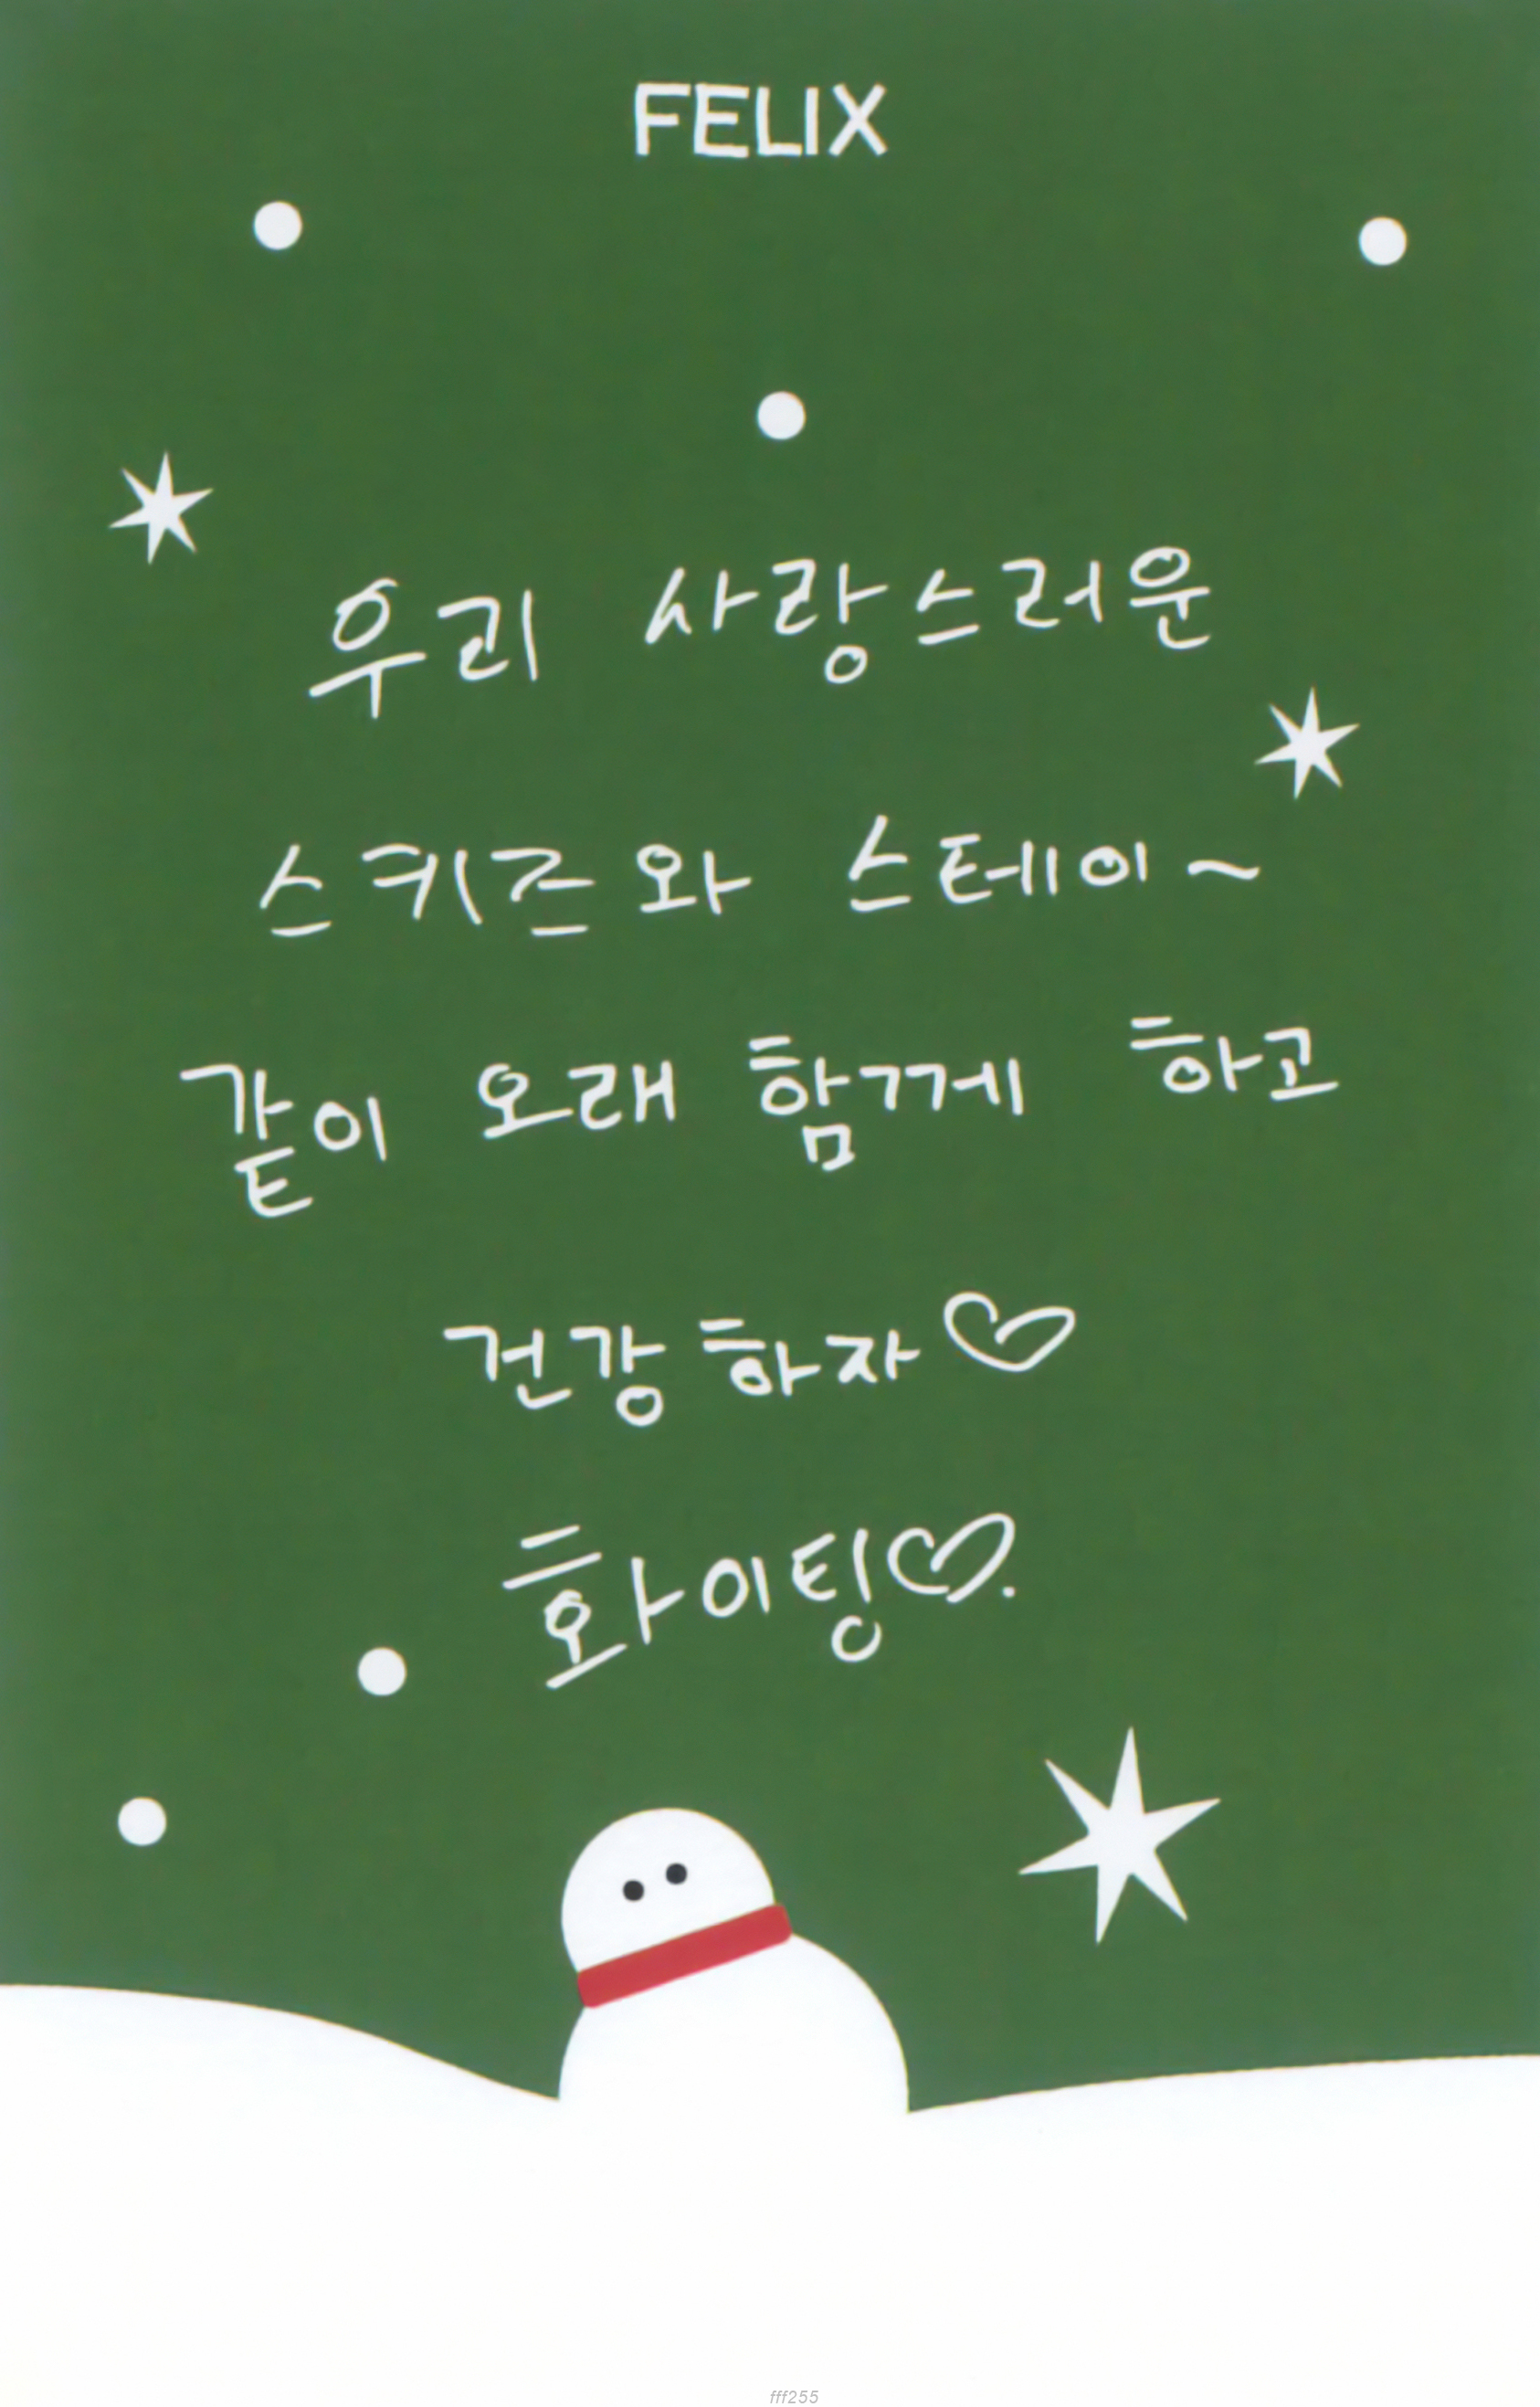 FELIX
우리 사랑스러운
스키즈와 스테이~
같이 오래 함께 하고
건강하자♡
화이팅♡.
fff255